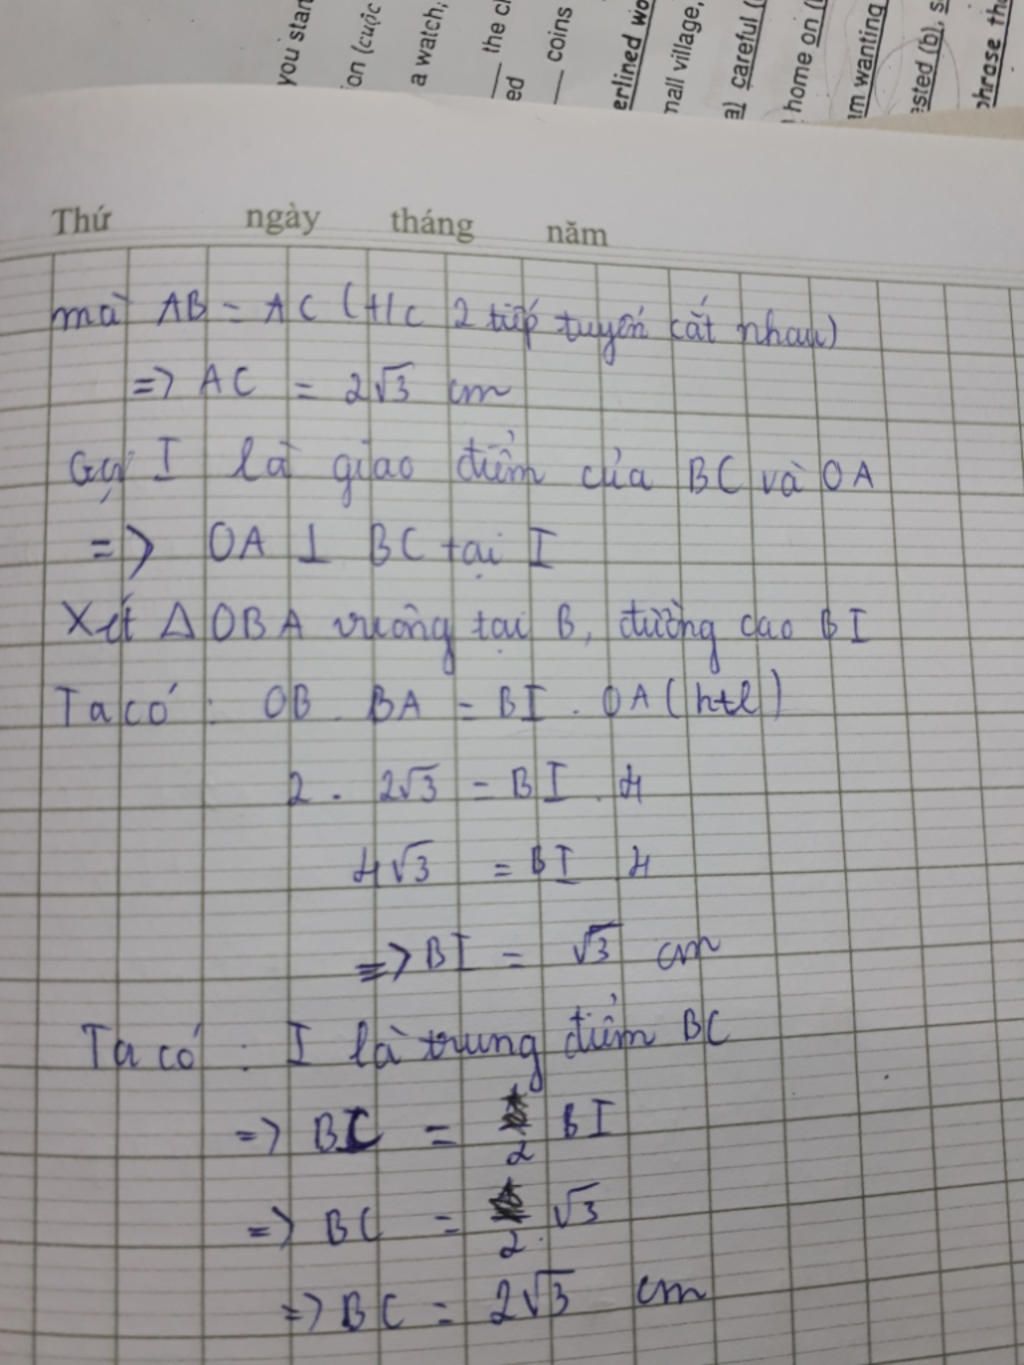 you stan
ion (cuộc
a watch,
___ the cl
ed
___ coins
erlined wo
mall village,
a) careful (
home on (
m wanting
ested (b), s
phrase the
Thứ ngày tháng năm
mà AB = AC (t/c 2 tiếp tuyến cắt nhau)
=> AC = 2√3 cm
Gọi I là giao điểm của BC và OA
=> OA ⊥ BC tại I
Xét Δ OBA vuông tại B, đường cao BI
Ta có : OB . BA = BI . OA (htl)
2 . 2√3 = BI . 4
4√3 = BI 4
=> BI = √3 cm
Ta có : I là trung điểm BC
=> BC = 2 BI
=> BC = 2 . √3
=> BC = 2√3 cm